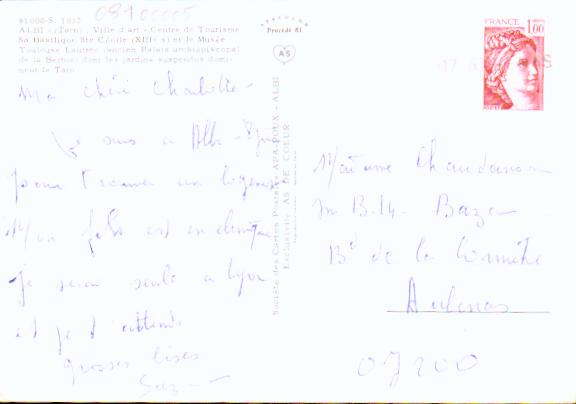 08100005
81000-S. 1057
ALBI - (Tarn) Ville d'art - Centre de Tourisme
Sa Basilique Ste Cécile (XIIIe s) et le Musée
Toulouse Lautrec (ancien Palais archiépiscopal
de la Berbie) dont les jardins suspendus domi-
nent le Tarn
Ma chéri Charlotte -
Je suis a Albi - 8 jours
pour trouver un logement
Mon fils est en clinique
je serai seule a Lyon
et je t attends
grosses bises
Suz
Procédé 81
AS
Société des Cartes Postales APA-POUX - ALBI
Exclusivité AS DE CŒUR
1,00
Madame
B.14. Baza
Bd de la Corniche
Aubenas
07200